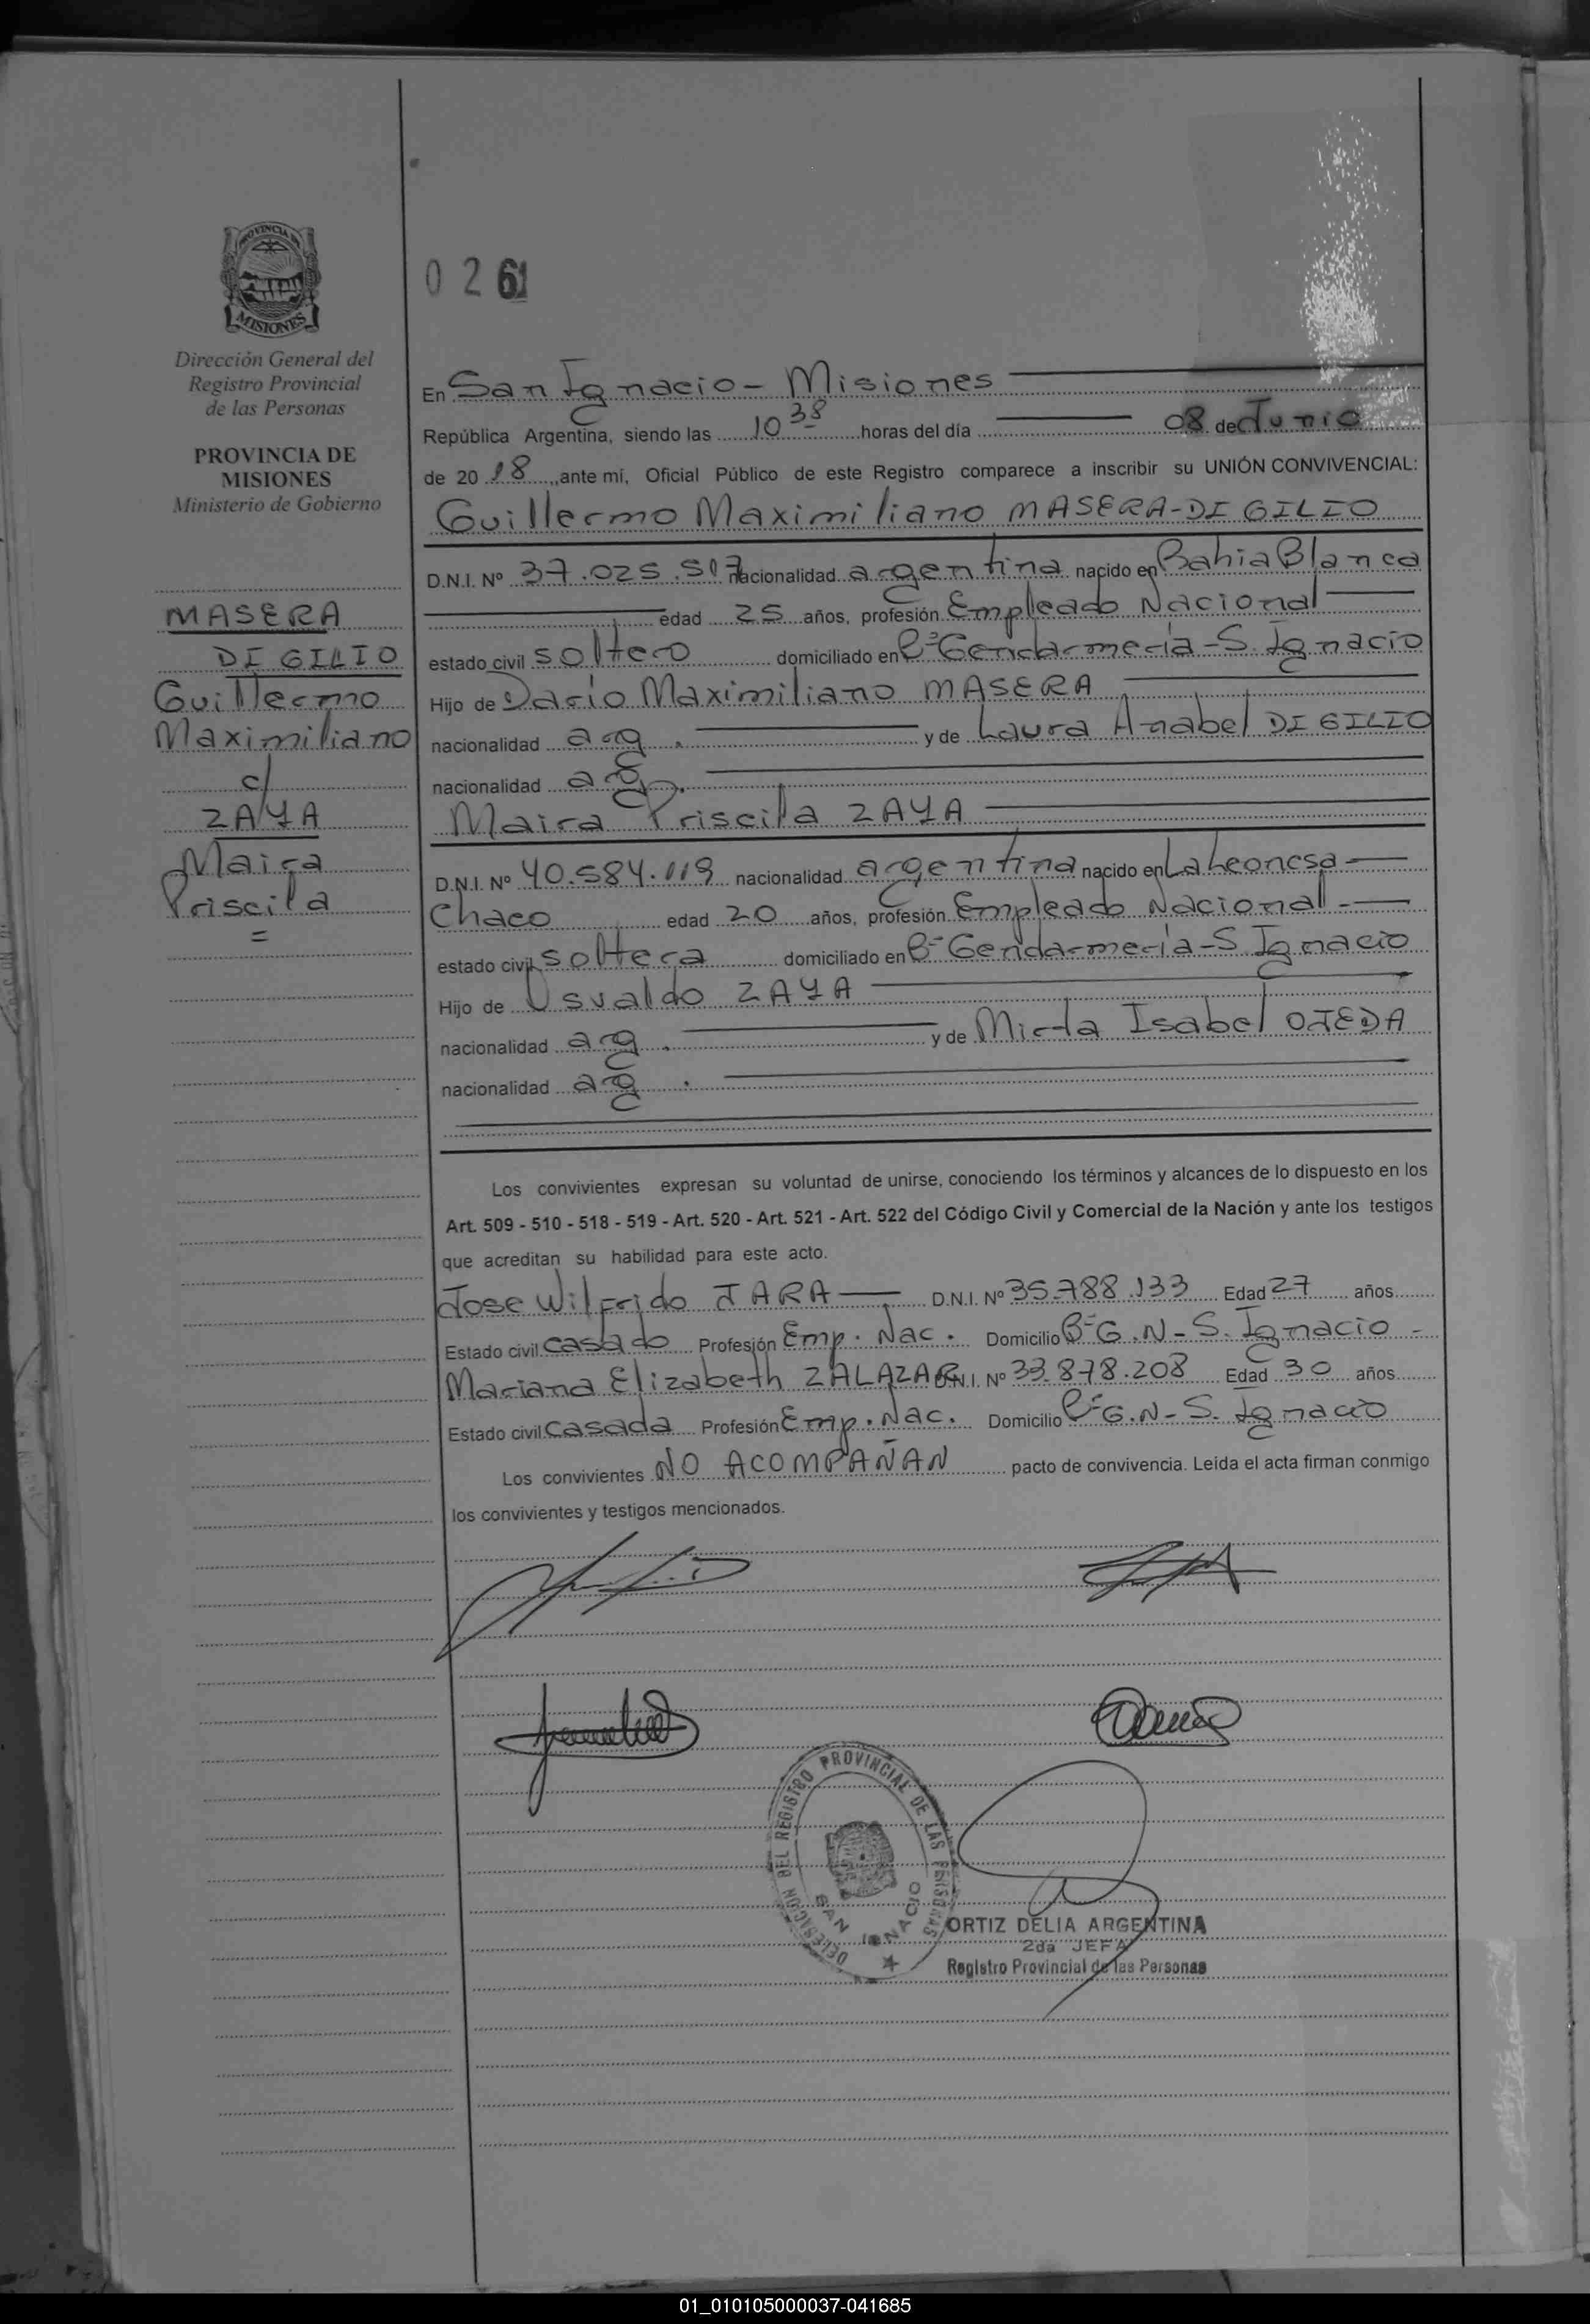 PROVINCIA DE
MISIONES
Dirección General del
Registro Provincial
de las Personas
PROVINCIA DE
MISIONES
Ministerio de Gobierno
MASERA
DI GILIO
Guillermo
Maximiliano
c/
ZAYA
Maira
Priscila
=
0 2 61
En San Ignacio - Misiones
República Argentina, siendo las 10 38 horas del día 08 de Junio
de 20 18, ante mí, Oficial Público de este Registro comparece a inscribir su UNIÓN CONVIVENCIAL:
Guillermo Maximiliano MASERA-DI GILIO
D.N.I. Nº 37.025.517 nacionalidad argentina nacido en Bahia Blanca
edad 25 años, profesión Empleado Nacional
estado civil soltero domiciliado en Bº Gendarmería - S. Ignacio
Hijo de Darío Maximiliano MASERA
nacionalidad arg. y de Laura Anabel DI GILIO
nacionalidad arg.
Maira Priscila ZAYA
D.N.I. Nº 40.584.119 nacionalidad argentina nacido en La Leonesa
Chaco edad 20 años, profesión Empleado Nacional
estado civil soltera domiciliado en Bº Gendarmería - S. Ignacio
Hijo de Osvaldo ZAYA
nacionalidad arg. y de Mirta Isabel OJEDA
nacionalidad arg.
Los convivientes expresan su voluntad de unirse, conociendo los términos y alcances de lo dispuesto en los
Art. 509 - 510 - 518 - 519 - Art. 520 - Art. 521 - Art. 522 del Código Civil y Comercial de la Nación y ante los testigos
que acreditan su habilidad para este acto.
Jose Wilfrido JARA D.N.I. Nº 35.788.133 Edad 27 años
Estado civil casado Profesión Emp. Nac. Domicilio Bº G.N - S. Ignacio -
Mariana Elizabeth ZALAZAR D.N.I. Nº 33.878.208 Edad 30 años
Estado civil casada Profesión Emp. Nac. Domicilio Bº G.N - S. Ignacio
Los convivientes NO ACOMPAÑAN pacto de convivencia. Leída el acta firman conmigo
los convivientes y testigos mencionados.
DELEGACION DEL REGISTRO PROVINCIAL DE LAS PERSONAS
SAN IGNACIO
ORTIZ DELIA ARGENTINA
2da JEFA
Registro Provincial de las Personas
01_010105000037-041685